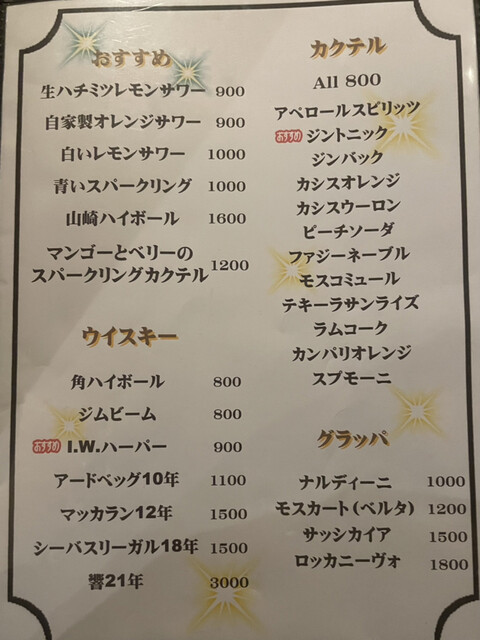 おすすめ
生ハチミツレモンサワー 900
自家製オレンジサワー 900
白いレモンサワー 1000
青いスパークリング 1000
山崎ハイボール 1600
マンゴーとベリーの
スパークリングカクテル 1200
ウイスキー
角ハイボール 800
ジムビーム 800
おすすめ I.W.ハーパー 900
アードベッグ10年 1100
マッカラン12年 1500
シーバスリーガル18年 1500
響21年 3000
カクテル
All 800
アペロールスピリッツ
おすすめ ジントニック
ジンバック
カシスオレンジ
カシスウーロン
ピーチソーダ
ファジーネーブル
モスコミュール
テキーラサンライズ
ラムコーク
カンパリオレンジ
スプモーニ
グラッパ
ナルディーニ 1000
モスカート(ベルタ) 1200
サッシカイア 1500
ロッカニーヴォ 1800